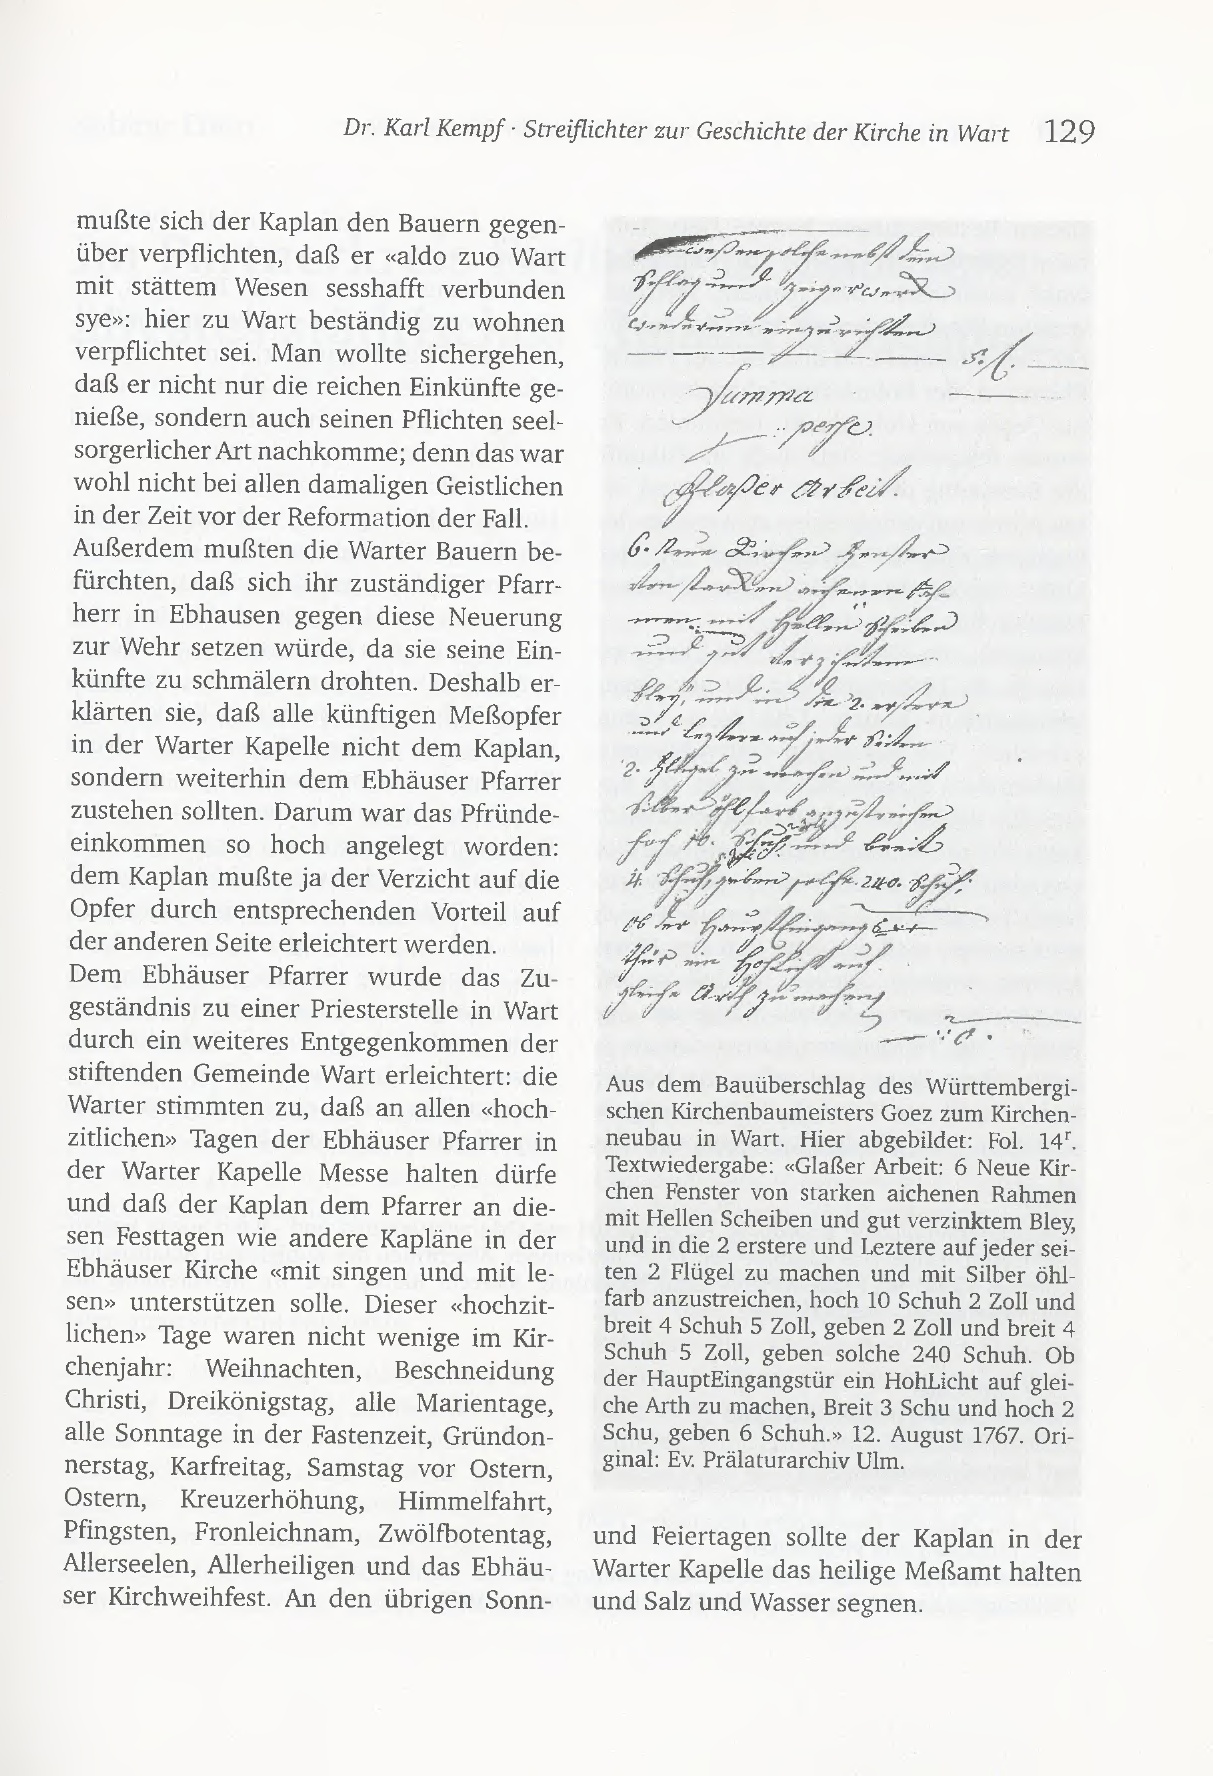 Dr. Karl Kempf · Streiflichter zur Geschichte der Kirche in Wart 129
mußte sich der Kaplan den Bauern gegen-
über verpflichten, daß er «aldo zuo Wart
mit stättem Wesen sesshafft verbunden
sye»: hier zu Wart beständig zu wohnen
verpflichtet sei. Man wollte sichergehen,
daß er nicht nur die reichen Einkünfte ge-
nieße, sondern auch seinen Pflichten seel-
sorgerlicher Art nachkomme; denn das war
wohl nicht bei allen damaligen Geistlichen
in der Zeit vor der Reformation der Fall.
Außerdem mußten die Warter Bauern be-
fürchten, daß sich ihr zuständiger Pfarr-
herr in Ebhausen gegen diese Neuerung
zur Wehr setzen würde, da sie seine Ein-
künfte zu schmälern drohten. Deshalb er-
klärten sie, daß alle künftigen Meßopfer
in der Warter Kapelle nicht dem Kaplan,
sondern weiterhin dem Ebhäuser Pfarrer
zustehen sollten. Darum war das Pfründe-
einkommen so hoch angelegt worden:
dem Kaplan mußte ja der Verzicht auf die
Opfer durch entsprechenden Vorteil auf
der anderen Seite erleichtert werden.
Dem Ebhäuser Pfarrer wurde das Zu-
geständnis zu einer Priesterstelle in Wart
durch ein weiteres Entgegenkommen der
stiftenden Gemeinde Wart erleichtert: die
Warter stimmten zu, daß an allen «hoch-
zitlichen» Tagen der Ebhäuser Pfarrer in
der Warter Kapelle Messe halten dürfe
und daß der Kaplan dem Pfarrer an die-
sen Festtagen wie andere Kapläne in der
Ebhäuser Kirche «mit singen und mit le-
sen» unterstützen solle. Dieser «hochzit-
lichen» Tage waren nicht wenige im Kir-
chenjahr: Weihnachten, Beschneidung
Christi, Dreikönigstag, alle Marientage,
alle Sonntage in der Fastenzeit, Gründon-
nerstag, Karfreitag, Samstag vor Ostern,
Ostern, Kreuzerhöhung, Himmelfahrt,
Pfingsten, Fronleichnam, Zwölfbotentag,
Allerseelen, Allerheiligen und das Ebhäu-
ser Kirchweihfest. An den übrigen Sonn-
solche nebst dem
Schlag und Zeiger werck
wiederum einzurichten
Summa
per se.
Glaßer Arbeit.
6. Neue Kirchen Fenster
von starcken aichenen Rah-
men mit Hellen Scheiben
und gut verzintem
bley, und in die 2. erstere
und Leztere auf jeder Seiten
2. Flügel zu machen und mit
Silber öhlfarb anzustreichen
hoch 10. Schuh und breit
4. Schuh, geben solche 240. Schuh.
Ob der HauptEingangs
thür ein HohLicht auf
gleiche Arth zu machen
Aus dem Bauüberschlag des Württembergi-
schen Kirchenbaumeisters Goez zum Kirchen-
neubau in Wart. Hier abgebildet: Fol. 14r.
Textwiedergabe: «Glaßer Arbeit: 6 Neue Kir-
chen Fenster von starken aichenen Rahmen
mit Hellen Scheiben und gut verzinktem Bley,
und in die 2 erstere und Leztere auf jeder sei-
ten 2 Flügel zu machen und mit Silber öhl-
farb anzustreichen, hoch 10 Schuh 2 Zoll und
breit 4 Schuh 5 Zoll, geben 2 Zoll und breit 4
Schuh 5 Zoll, geben solche 240 Schuh. Ob
der HauptEingangstür ein HohLicht auf glei-
che Arth zu machen, Breit 3 Schu und hoch 2
Schu, geben 6 Schuh.» 12. August 1767. Ori-
ginal: Ev. Prälaturarchiv Ulm.
und Feiertagen sollte der Kaplan in der
Warter Kapelle das heilige Meßamt halten
und Salz und Wasser segnen.